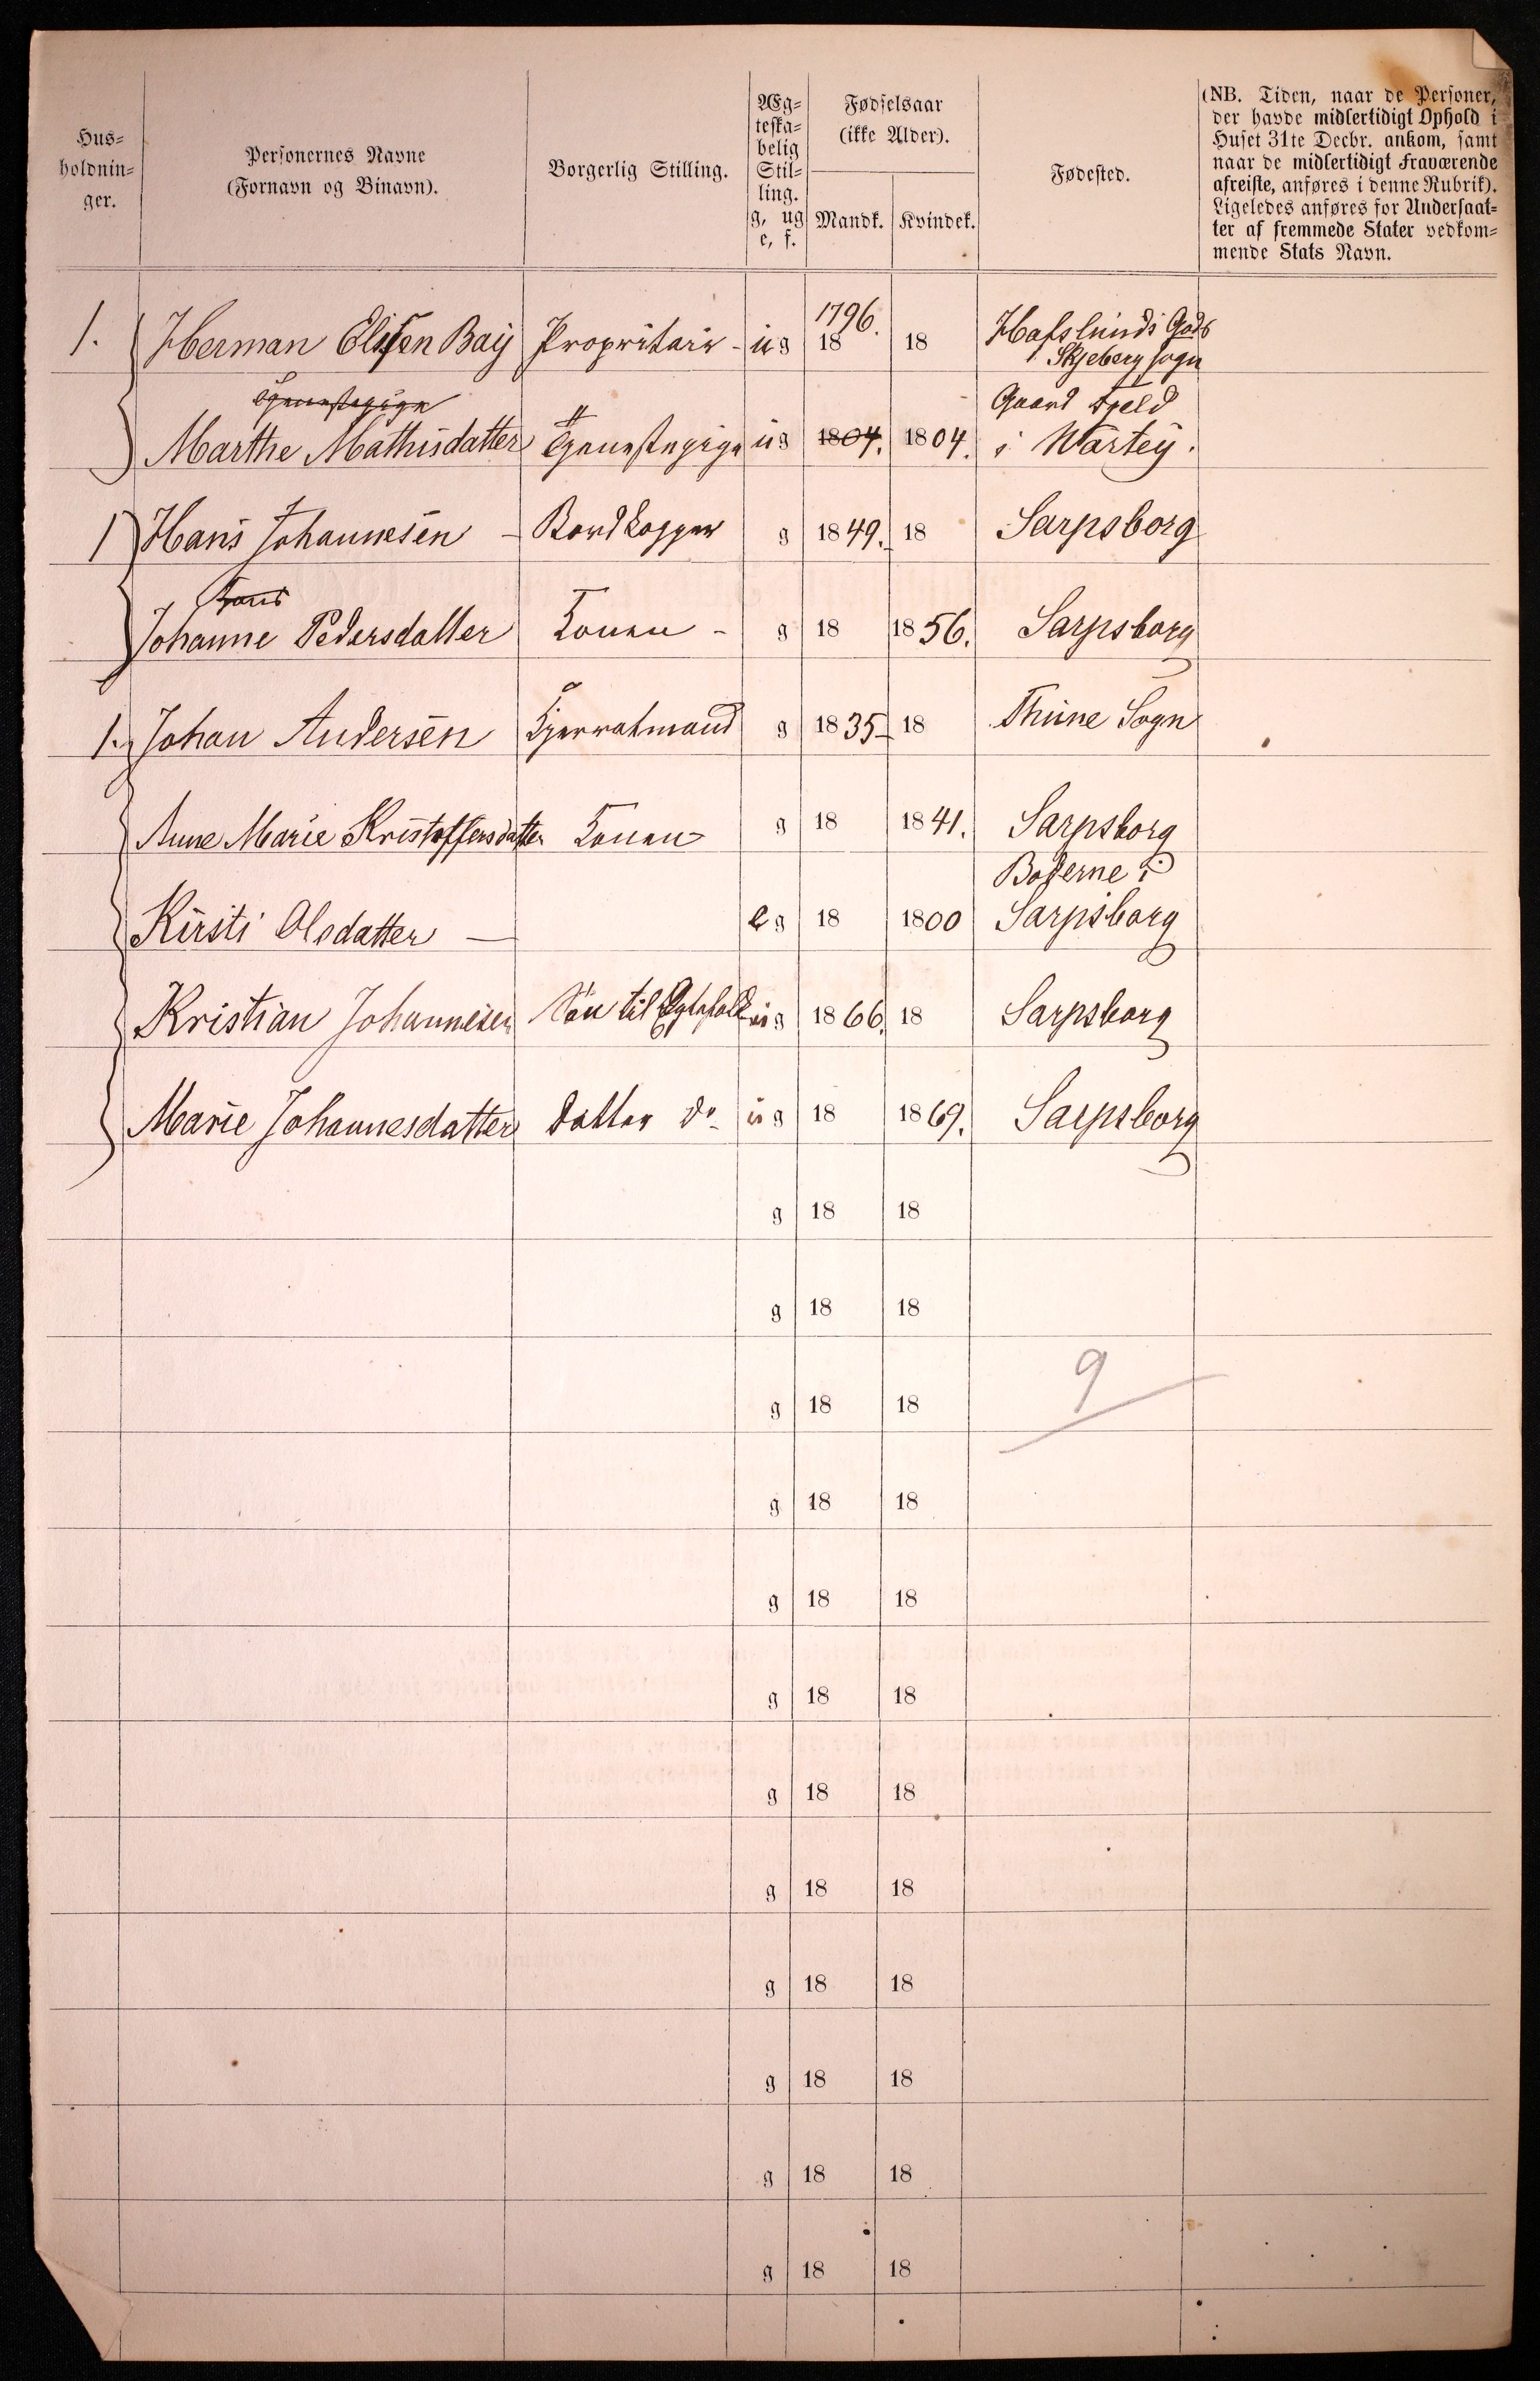 Hus-
holdnin-
ger.
Personernes Navne
(Fornavn og Binavn).
Borgerlig Stilling.
Æg-
teska-
belig
Stil-
ling.
g, ug
e, f.
Fødselsaar
(ikke Alder).
Mandk. Kvindek.
Fødested.
(NB. Tiden, naar de Personer,
der havde midlertidigt Ophold i
Huset 31te Decbr. ankom, samt
naar de midlertidigt Fraværende
afreiste, anføres i denne Rubrik).
Ligeledes anføres for Undersaat-
ter af fremmede Stater vedkom-
mende Stats Navn.
1. Herman Elifen Baÿ Propritair - ug 1796. 18 18 Hafslunds Gods
Skjeberg sogn
Tjenestepige
Marthe Mathisdatter Tjenestepige ug 1804. 1804. Gaard Fjeld
i Warteÿ.
1 Hans Johannesen - Bordhogger g 1849. 18 Sarpsborg
Kone
Johanne Pedersdatter Konen - g 18 1856. Sarpsborg
1. Johan Andersen Kjerraadmand g 1835 18 Thune Sogn
Anne Marie Kristoffersdatter Konen g 18 1841. Sarpsborg
Kirsti Olsdatter — eg 18 1800 Boderne i
Sarpsborg
Kristian Johannesen Søn til Egtefolk ug 1866. 18 Sarpsborg
Marie Johannesdatter Datter do ug 18 1869. Sarpsborg
g 18 18
g 18 18
g 18 18 9
g 18 18
g 18 18
g 18 18
g 18 18
g 18 18
g 18 18
g 18 18
g 18 18
g 18 18